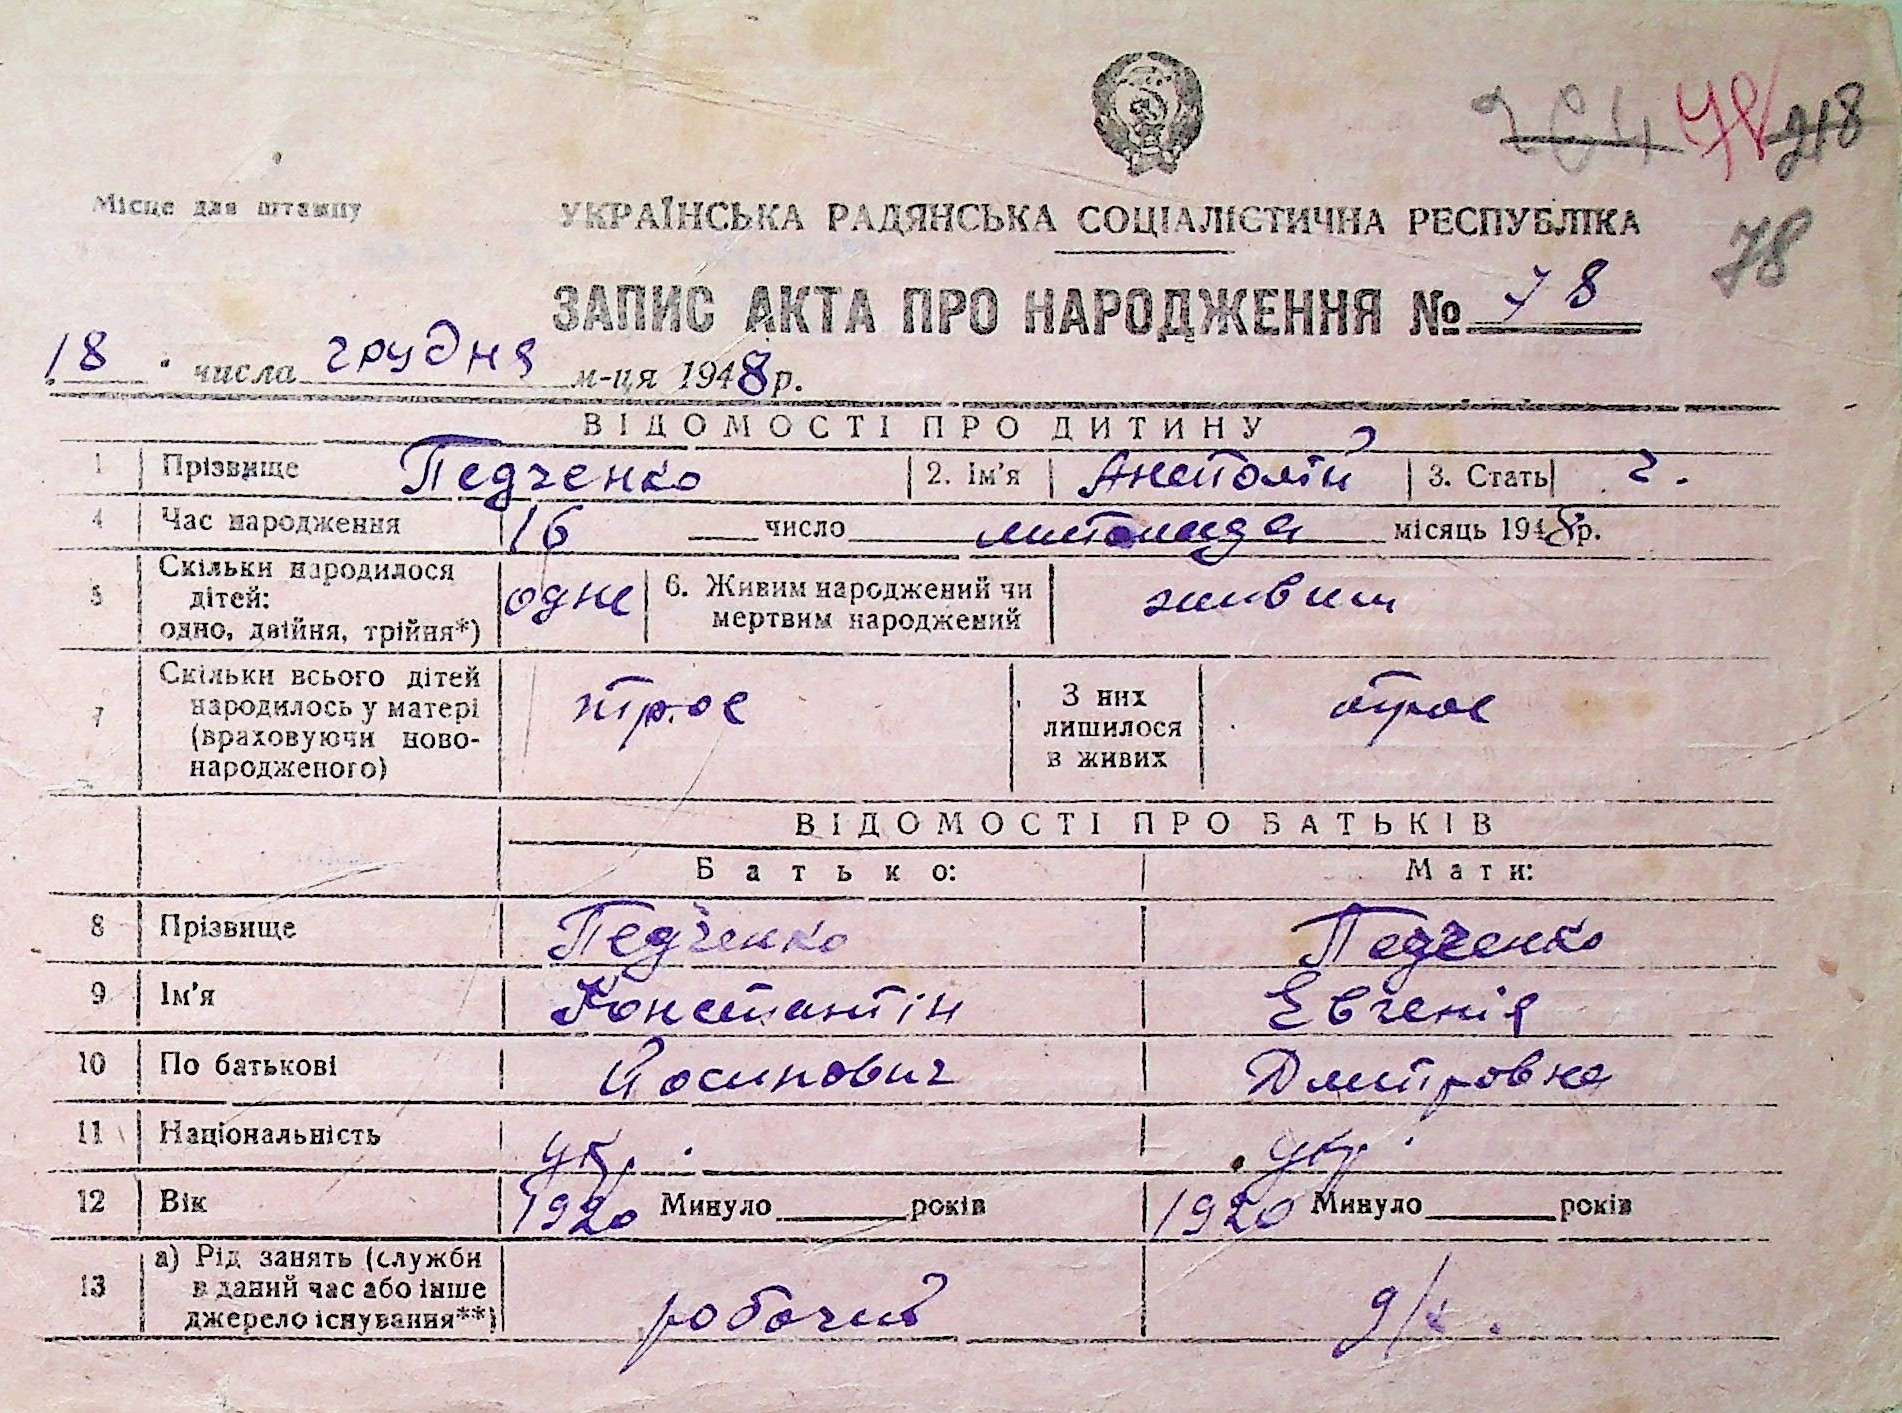 204 78 218
Місце для штампу
УКРАЇНСЬКА РАДЯНСЬКА СОЦІАЛІСТИЧНА РЕСПУБЛІКА
78
ЗАПИС АКТА ПРО НАРОДЖЕННЯ № 78
18 числа грудня м-ця 1948 р.
ВІДОМОСТІ ПРО ДИТИНУ
1 Прізвище Педченко 2. Ім'я Анатолій 3. Стать ч.
4 Час народження 16 число листопада місяць 1948 р.
5 Скільки народилося
дітей:
одно, двійня, трійня*) одне 6. Живим народжений чи
мертвим народжений живим
7 Скільки всього дітей
народилось у матері
(враховуючи ново-
народженого) троє З них
лишилося
в живих троє
ВІДОМОСТІ ПРО БАТЬКІВ
Батько: Мати:
8 Прізвище Педченко Педченко
9 Ім'я Константін Евгенія
10 По батькові Йосипович Дмитровна
11 Національність укр. укр.
12 Вік 1920 Минуло року 1920 Минуло років
13 а) Рід занять (служби
в даний час або інше
джерело існування**) робочий д/г.